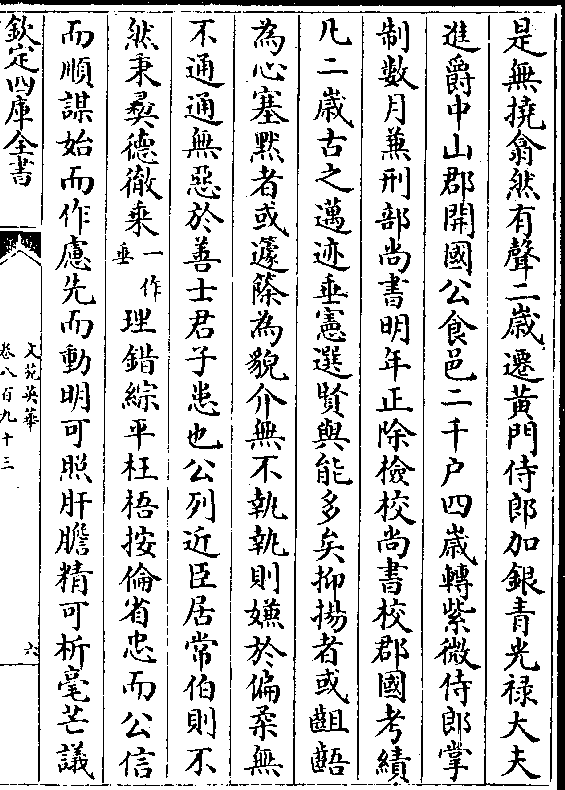 是無撓翕然有聲二歳遷黄門侍郎加銀青光禄大夫
進爵中山郡開國公食邑二千户四歳轉紫微侍郎掌
制數月兼刑部尚書明年正除檢校尚書校郡國考績
凡二歳古之邁迹垂憲選賢與能多矣抑揚者或齟齬
為心塞黙者或蘧蒢為貌介無不執執則嫌於偏柔無
不通通無惡於善士君子患也公列近臣居常伯則不
然秉彞德徹乗一作垂理錯綜平枉梧按倫省忠而公信
而順謀始而作慮先而動明可照肝膽精可析毫芒議
欽定四庫全書
文苑英華
卷八百九十三
六